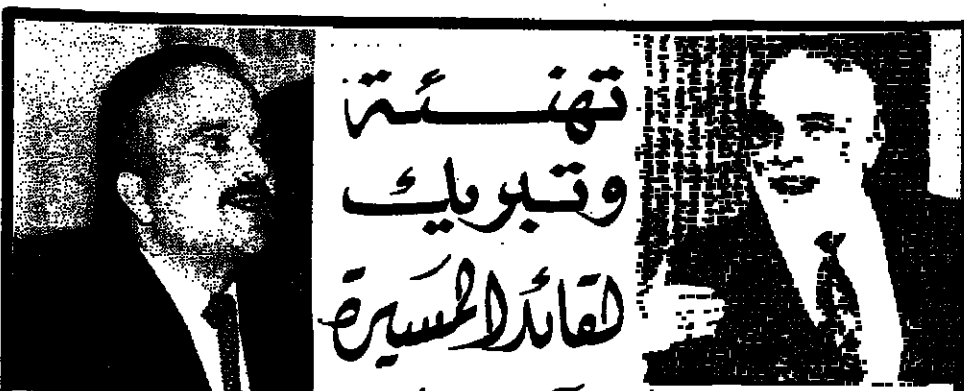 تهنئة
وتبريك
لقائد المسيرة